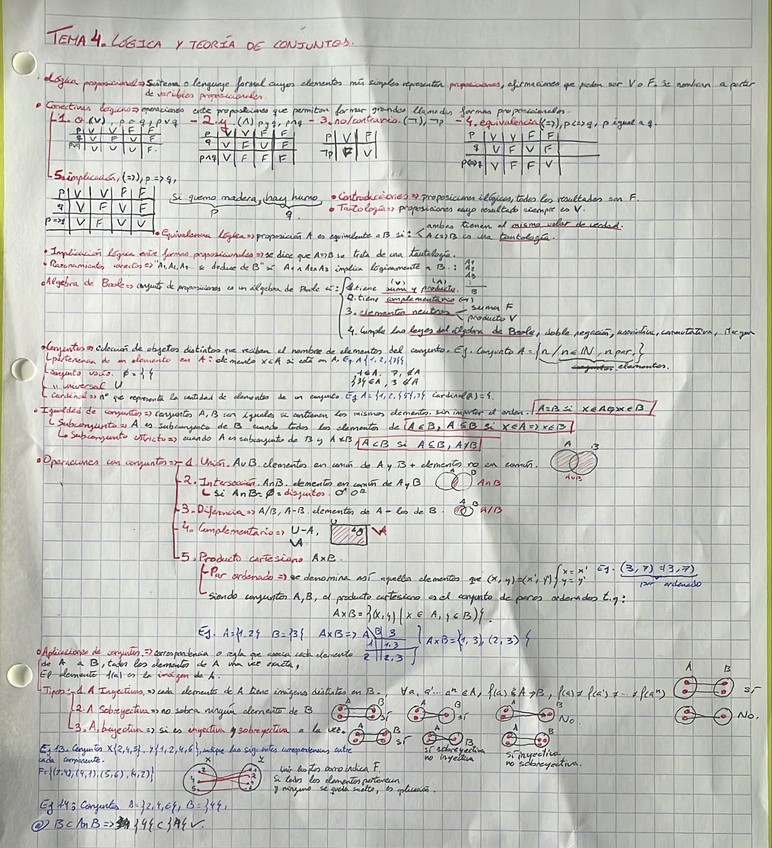 TEMA 4. LÓGICA Y TEORÍA DE CONJUNTOS.
• Lógica proposicional => Sistema o lenguaje formal cuyos elementos más simples representan proposiciones, afirmaciones que pueden ser V o F. Se nombran a partir
de variables proposicionales.
• Conectivas lógicas => operaciones entre proposiciones que permiten formar grandes llamadas formas proposicionales.
1. o (∨), p o q, p∨q - 2. y (∧) p y q, p∧q - 3. no/contrario (¬), ¬p - 4. equivalencia (<=>), p<=>q, p igual a q.
p V V F F
q V F V F
p∨q V V V F
p V V F F
q V F V F
p∧q V F F F
p V F
¬p F V
p V V F F
q V F V F
p<=>q V F F V
5. implicación, (=>), p => q,
p V V F F
q V F V F
p=>q V F V V
Si quemo madera, hay humo
p q
• Contradicciones => proposiciones ilógicas, todos los resultados son F.
• Tautología => proposiciones cuyo resultado siempre es V.
• Equivalencia lógica => proposición A es equivalente a B si: ambas tienen el mismo valor de verdad.
A<=>B es una tautología.
• Implicación lógica entre formas proposicionales => se dice que A=>B se trata de una tautología.
• Razonamientos correctos => "A1, A2, A3 se deduce de B" si A1∧A2∧A3 implica lógicamente a B.: A1
A2
A3
B
• Álgebra de Boole => conjunto de proposiciones es un álgebra de Boole si:
1. tiene suma y producto. (∨) (∧)
2. tiene complementario (¬)
3. elementos neutros suma F
producto V
4. Cumple las leyes del álgebra de Boole, doble negación, asociativa, conmutativa, Morgan
• Conjuntos => colección de objetos distintos que reciben el nombre de elementos del conjunto. Ej. Conjunto A = {n / n ∈ IN, n par,}
elementos.
pertenencia de un elemento en A: elemento x∈A si está en A. Ej A{1, 2, {3}}
1∈A. 7, ∉A
{3}∈A, 3 ∉A
conjunto vacío. ∅ = { }
" universal U
cardinal => nº que representa la cantidad de elementos de un conjunto
• Igualdad de conjuntos => conjuntos A, B son iguales si contienen los mismos elementos, sin importar el orden. A=B si x∈A<=>x∈B
Subconjunto => A es subconjunto de B cuando todos los elementos de A∈B, A⊆B si x∈A => x∈B
Subconjunto estricto => cuando A es subconjunto de B y A≠B A⊂B si A⊆B, A≠B
• Operaciones con conjuntos => 1. Unión. A∪B. elementos en común de A y B + elementos no en común.
A B
A∪B
2. Intersección. A∩B. elementos en común de A y B A∩B
Si A∩B=∅ = disjuntos.
3. Diferencia => A/B, A-B. elementos de A - los de B. A/B
4. Complementario => U-A,
5. Producto cartesiano A×B.
Par ordenado => se denomina así aquellos elementos que (x, y)=(x', y') x = x'
y = y'
Ej. (3, 7) = (3, 7)
par ordenado
siendo conjuntos A, B, el producto cartesiano es el conjunto de pares ordenados t.q:
A×B = {(x, y) | x ∈ A, y ∈ B}.
Ej. A={1,2} B={3} A×B => A B 3
1 1,3
2 2,3
A×B={(1, 3), (2, 3)}
• Aplicaciones de conjuntos => correspondencia o regla que asocia cada elemento
de A a B, todos los elementos de A una vez exacta,
El elemento f(a) es la imagen de A.
A B
Sí
Tipos: 1. A Inyectiva => cada elemento de A tiene imágenes distintas en B.
No.
2. A Sobreyectiva => no sobra ningún elemento de B
Sí
No.
3. A. biyectiva => si es inyectiva y sobreyectiva a la vez.
Sí
sí sobreyectiva
no inyectiva
sí inyectiva
no sobreyectiva.
Ej 13. Conjuntos X{2,4,5}, Y{1,2,4,6}, indique las siguientes correspondencias entre
cada componente.
X Y
Unir los ptos como indica F.
Si todos los elementos pertenecen
y ninguno se queda suelto, es aplicación.
Ej 14: Conjuntos A={2,4,6}, B={4},
a) B⊂A∩B => {4}⊂{4} ✓.